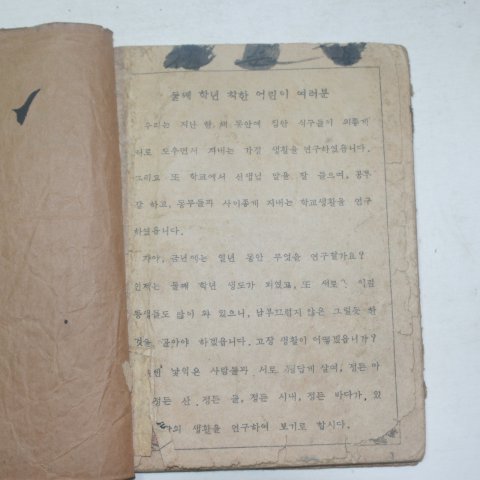 둘째 학년 착한 어린이 여러분
우리는 지난 한 해 동안에 집안 식구들이 의좋게
서로 도우면서 지내는 가정 생활을 연구하였읍니다.
그리고 또 학교에서 선생님 말을 잘 들으며, 공부
잘 하고, 동무들과 사이좋게 지내는 학교생활을 연구
하였읍니다.
자아, 금년에는 일년 동안 무엇을 연구할가요?
인제는 둘째 학년 생도가 되였고, 또 새로 어린
동생들도 많이 와 있으니, 남부끄럽지 않은 그럴듯 한
것을 골아야 하겠읍니다. 고장 생활이 어떻겠읍니까?
낯익은 사람들과 서로 정답게 살며, 정든 마
정든 산 정든 들, 정든 시내, 정든 바다가, 있
의 생활을 연구하여 보기로 합시다.